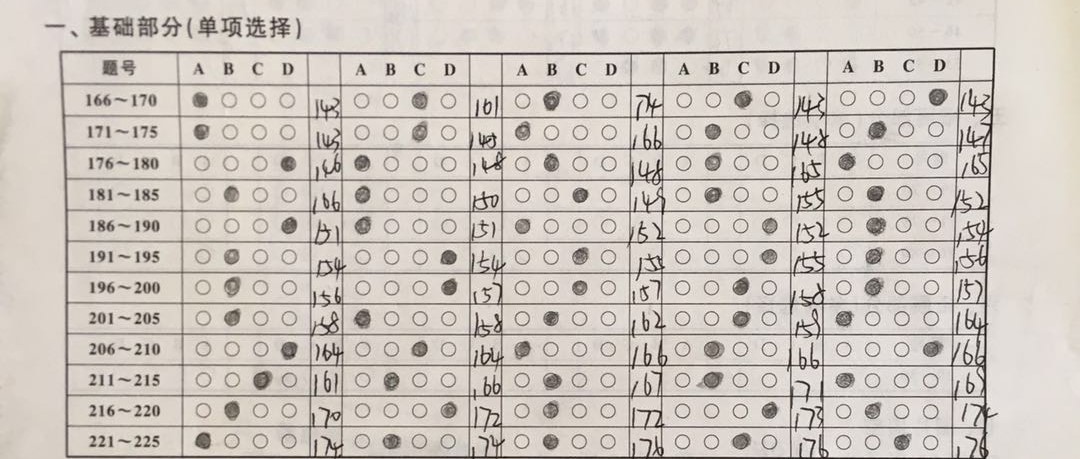 一、基础部分(单项选择)
题号 A B C D A B C D A B C D A B C D A B C D
166～170 143 161 174 143 143
171～175 143 143 166 148 147
176～180 146 148 148 165 165
181～185 166 150 149 155 152
186～190 151 151 152 152 154
191～195 154 154 155 155 156
196～200 156 157 157 158 157
201～205 158 158 162 159 164
206～210 164 164 166 166 166
211～215 161 166 167 171 169
216～220 170 172 172 173 174
221～225 174 174 176 176 176